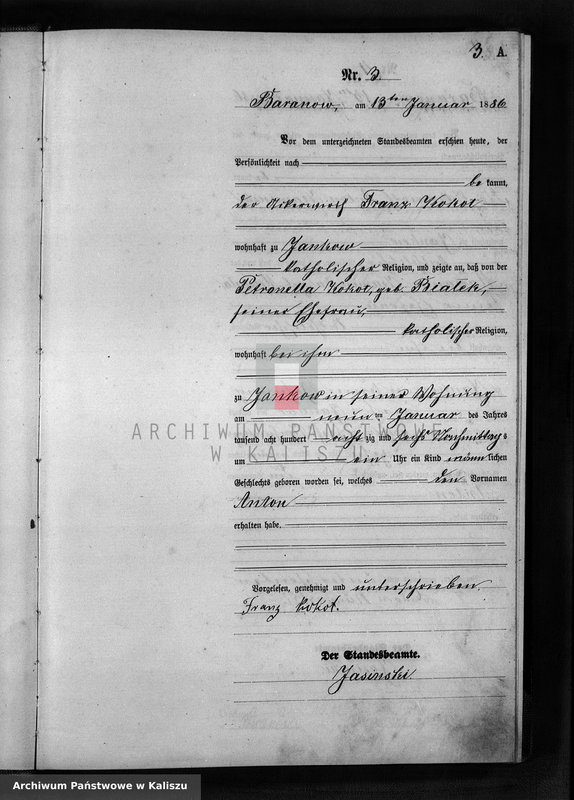 3. A.
Nr. 3.
Baranow, am 13ten Januar 1886
Vor dem unterzeichneten Standesbeamten erschien heute, der
Persönlichkeit nach
be kannt,
der Ackerwirth Franz Kokot
wohnhaft zu Jankow
katholischer Religion, und zeigte an, daß von der
Petronella Kokot, geb. Bialek,
seiner Ehefrau,
katholischer Religion,
wohnhaft bei ihm
zu Jankow in seiner Wohnung
am neun ten Januar des Jahres
tausend acht hundert acht zig und sechs Nachmittags
um ein Uhr ein Kind männ lichen
Geschlechts geboren worden sei, welches den Vornamen
Anton
erhalten habe.
Vorgelesen, genehmigt und unterschrieben.
Franz Kokot.
Der Standesbeamte.
Jasinski
ARCHIWUM PAŃSTWOWE
W KALISZU
Archiwum Państwowe w Kaliszu